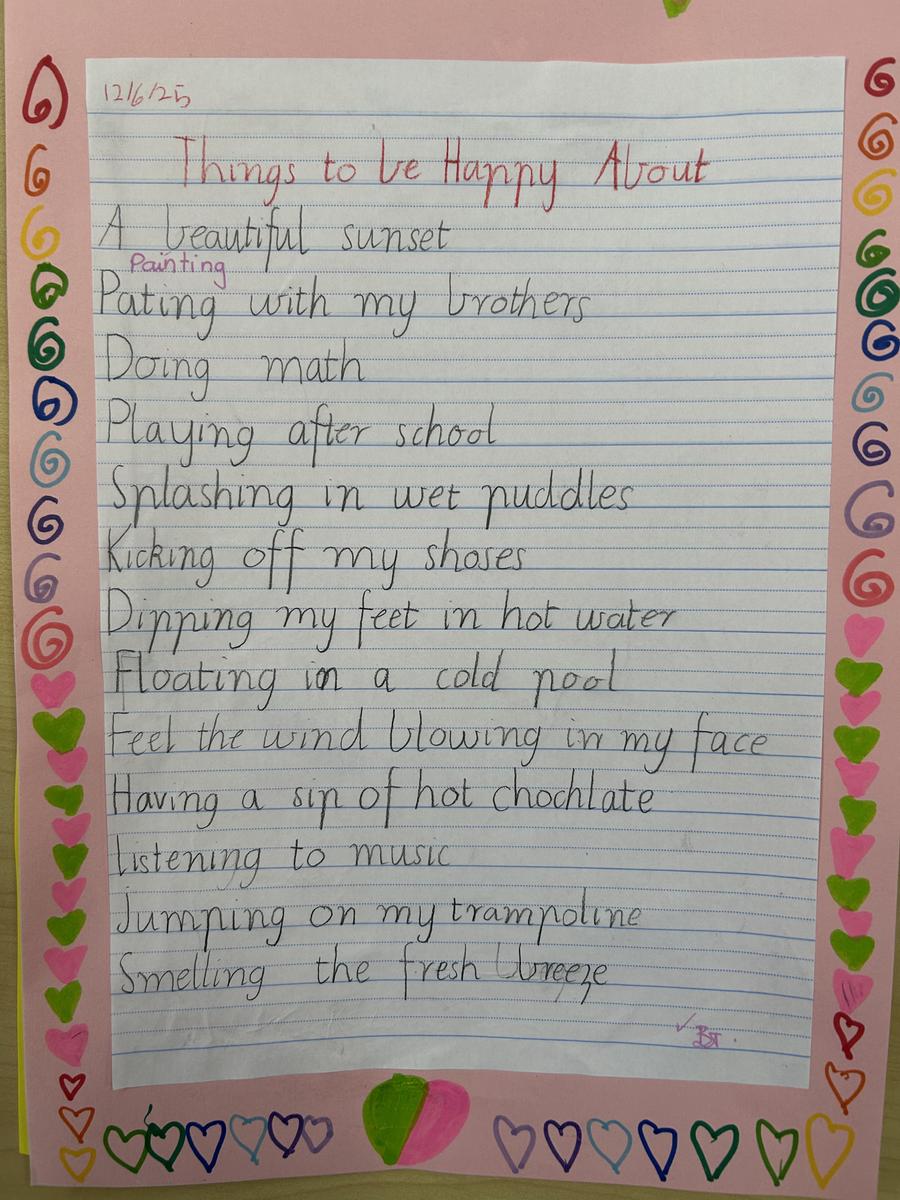 12/6/25
Things to be Happy About
A beautiful sunset
Painting
Pating with my brothers
Doing math
Playing after school
Splashing in wet puddles
Kicking off my shoses
Dipping my feet in hot water
Floating in a cold pool
Feel the wind blowing in my face
Having a sip of hot chochlate
Listening to music
Jumping on my trampoline
Smelling the fresh breeze